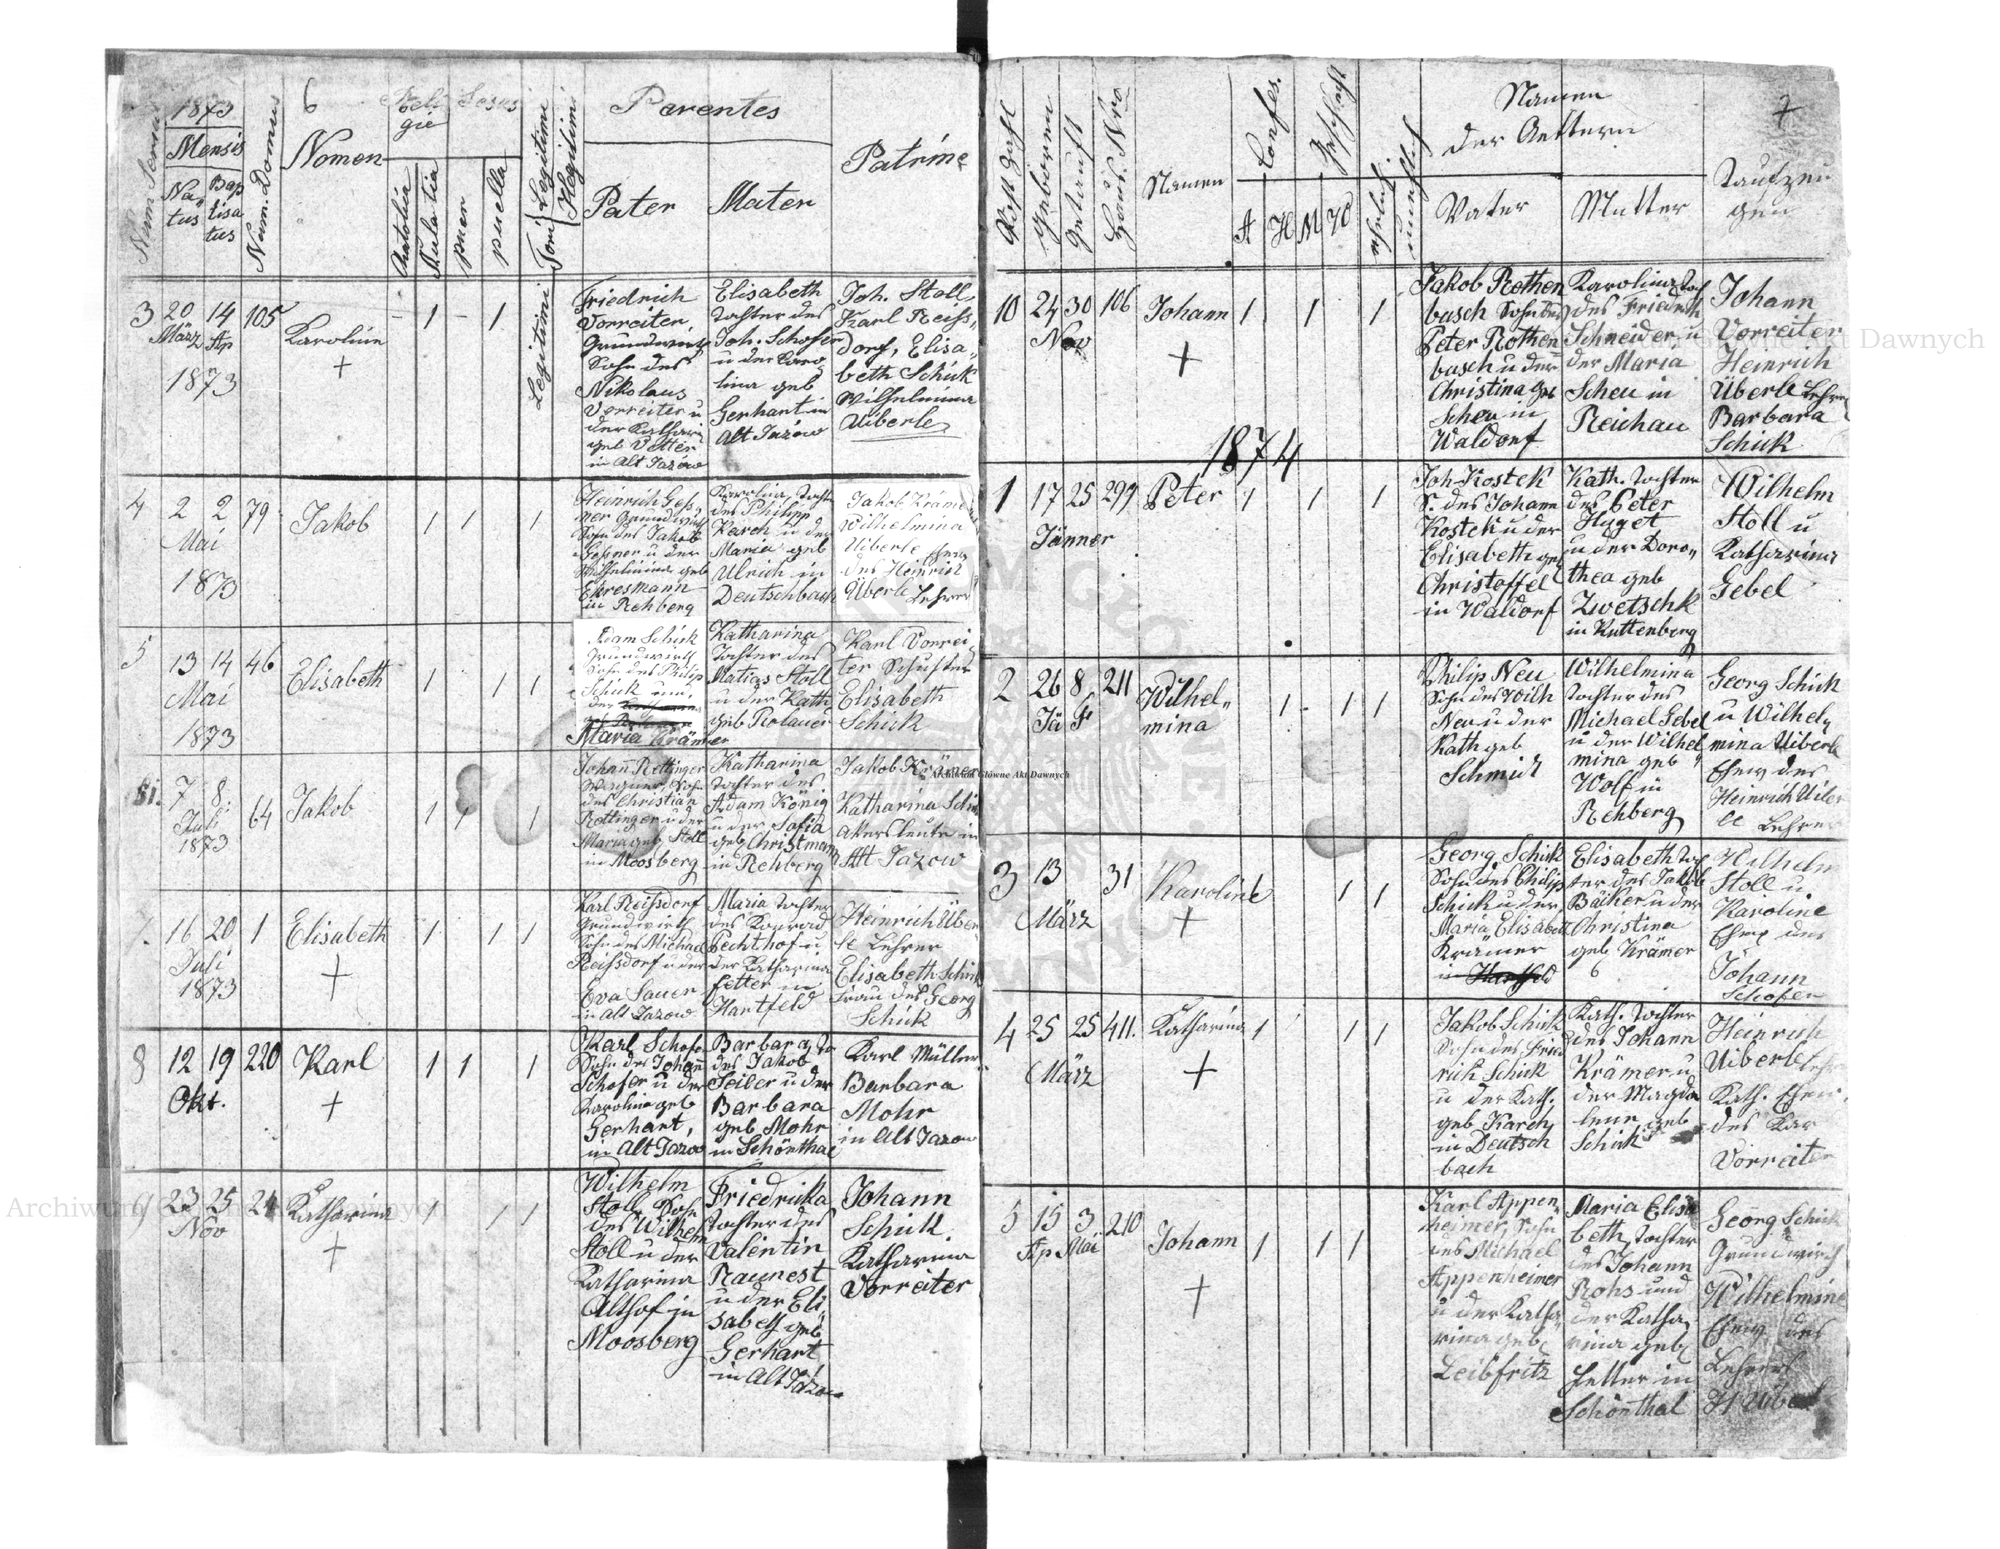 1873
6
Religie
Sexus
Num. Seriae
Mensis
Natus
Baptisatus
Num. Domus
Nomen
puer
puella
Tori { Legitimi
Illegitimi
Parentes
Pater
Mater
Patrine
3
20 14
März Ap
1873
105
Karoline
+
- 1 - 1
Legitimi
Friedrich
Vorreiter,
Grundwirth
Sohn des
Nikolaus
Vorreiter u
der Kathari
geb Vetter
in Alt Jazow
Elisabeth
tochter des
Joh. Schofer
u der Caro
lina geb
Gerhart in
Alt Jazow
Joh. Stoll,
Karl Reiss-
dorf, Elisa-
beth Schick
Wilhelmina
Uiberle
4
2 2
Mai
1873
79
Jakob
1 1 1
Heinrich Geß
ner Grundwirth
Sohn des Jakob
Geßner u der
Wilhelmina geb
Ekresmann
in Rehberg
Karolina, tochte
des Philipp
Karch u der
Maria geb
Ulrich in
Deutschbach
Jakob Kräme
Wilhelmina
Uiberle Ehew
des Heinrich
Überle Lehrer
5
13 14
Mai
1873
46
Elisabeth
1 1 1
Adam Schick
Grundwirth
Sohn des Philip
Schick und
der
Maria Krämer
Katharina
tochter des
Matias Stoll
u der Kath
geb Rolauer
Karl Vorrei
ter Schuster
Elisabeth
Schick
6.
7 8.
Juli
1873
64
Jakob
1 1 1
Johann Rottinger
Wagner, Sohn
des Christian
Rottinger u der
Maria geb Stoll
in Moosberg
Katharina
tochter des
Adam König
u der Sofia
geb Christmann
in Rehberg
Jakob Krämer
Katharina Schick
akersleute in
Alt Jazow
7.
16 20
Juli
1873
1
Elisabeth
+
1 1 1
Karl Reißdorf
Grundwirth
Sohn des Michael
Reißdorf u der
Eva Sauer
in Alt Jazow
Maria tochter
des Konrad
Pechthof u
der Katharina
Fetter in
Hartfeld
Heinrich Über
le Lehrer
Elisabeth Schick
Frau des Georg
Schick
8
12 19
Okt.
220
Karl
+
1 1 1
Karl Schofer
Sohn des Johann
Schofer u der
Karolina geb
Gerhart,
in Alt Jazow
Barbara, to
des Jakob
Seiler u der
Barbara
geb Mohr
in Schönthal
Karl Müller
Barbara
Mohr
in Alt Jazow
9
23 25
Nov
24
Katharina
+
1 1 1
Wilhelm
Stoll, Sohn
des Wilhelm
Stoll u der
Katharina
Althof in
Moosberg
Friedricka
tochter des
Valentin
Raunest
u der Eli,
sabeth geb
Gerhart
in Alt Jazow
Johann
Schick.
Katharina
Vorreiter
7
Post Zahl
Geboren
Getauft
Haus Nro
Namen
Confes.
A H
M W
ehelich
unehelich
Namen
der Aeltern
Vater
Mutter
Taufzeu
gen
10
24 30
Nov
106
Johann
+
1 1 1
Jakob Rothen
busch Sohn des
Peter Rothen
busch u der
Christina geb
Scheu in
Waldorf
Karolina, toch
des Friedrich
Schneider, u
der Maria
Scheu in
Reichau
Johann
Vorreiter
Heinrich
Überle Lehre
Barbara
Schick
1874
1
17 25
Jänner
299
Peter
1 1 1
Joh Kostek
S. des Johann
Kostek u der
Elisabeth geb
Christoffel
in Waldorf
Kath. tochter
des Peter
Huget
u der Doro-
thea geb
Zwetschk
in Kuttenberg
Wilhelm
Stoll u
Katharina
Gebel
2
26 8
Jä F
211
Wilhel-
mina
1 - 1 1
Philip Neu
Sohn des Wilh
Neu u der
Kath geb
Schmidt
Wilhelmina
tochter des
Michael Gebel
u der Wilhel
mina geb
Wolf in
Rehberg
Georg Schick
u Wilhel,
mina Uiberle
Ehew des
Heinrich Uiber
le Lehrer
3
13
März
31
Karoline
+
1 1 1
Georg Schick
Sohn des Philip
Schick u der
Maria Elisabeth
Krämer
in Hartfeld
Elisabeth, toch
ter des Jakob
Bäcker u der
Christina
geb Krämer
Wilhelm
Stoll u.
Karoline
Ehew des
Johann
Schofer
4
25 25
März
411.
Katharina
+
1 1 1
Jakob Schick
Sohn des Fried
rich Schick
u der Kath.
geb Karch,
in Deutsch
bach
Kath. tochter
des Johann
Krämer u
der Magda
lena geb
Schick
Heinrich
Uiberle Lehr
Kath. Ehew.
des Kar
Vorreiter
5
15 3
Ap Mai
210
Johann
+
1 1 1
Karl Appen-
heimer, Sohn
des Michael
Appenheimer
u der Katha,
rina geb
Leibfritz
Maria Elisa
beth, tochter
des Johann
Rohs und
der Katha,
rina geb
Fetter in
Schönthal
Georg Schick
Grundwirth
Wilhelmine
Ehew des
Lehrers
H Uiberl
Archiwum Główne Akt Dawnych
Archiwum Główne Akt Dawnych
Archiwum Główne Akt Dawnych